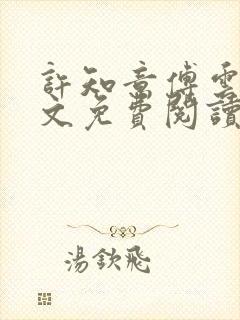 許知意傅雲
文免費閱讀
湯欽飛